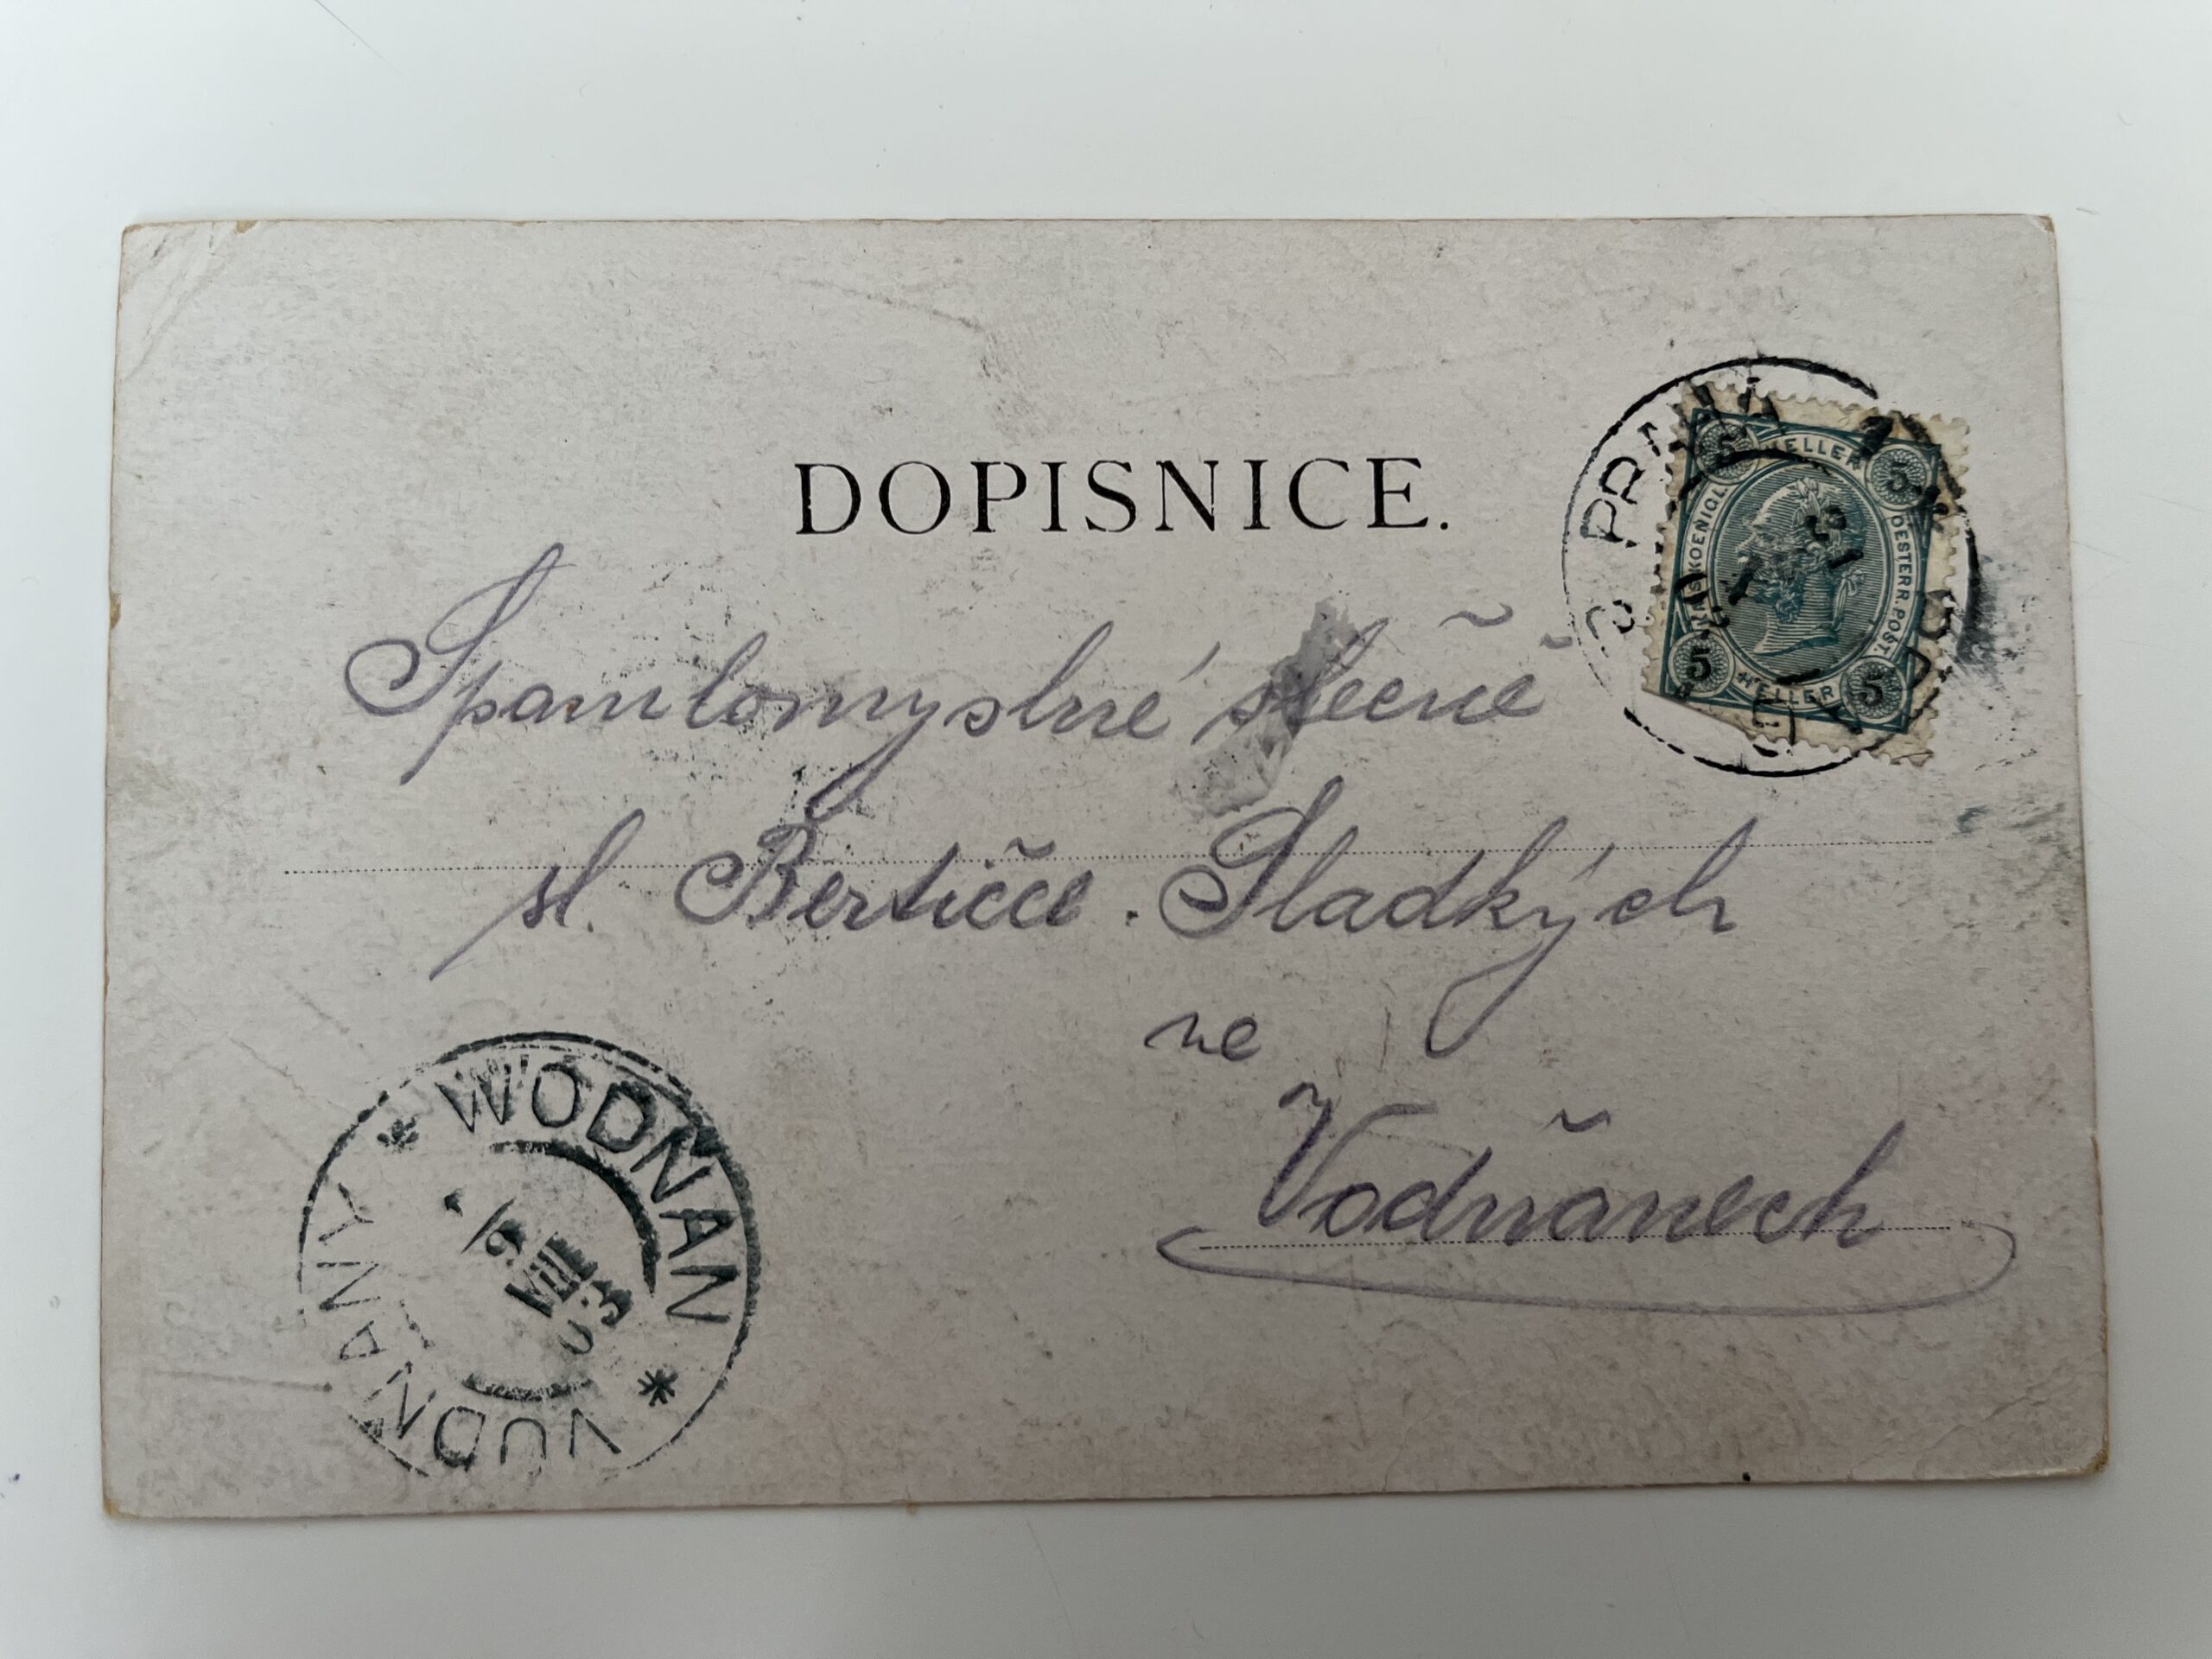 DOPISNICE.
5 HELLER 5
KAIS. KOENIGL.
OESTERR. POST.
5 HELLER 5
Spanilomyslné slečně
sl. Bertičce Sladkých
ve
Vodňanech
WODNAN
9
VIII
03
VODŇANY